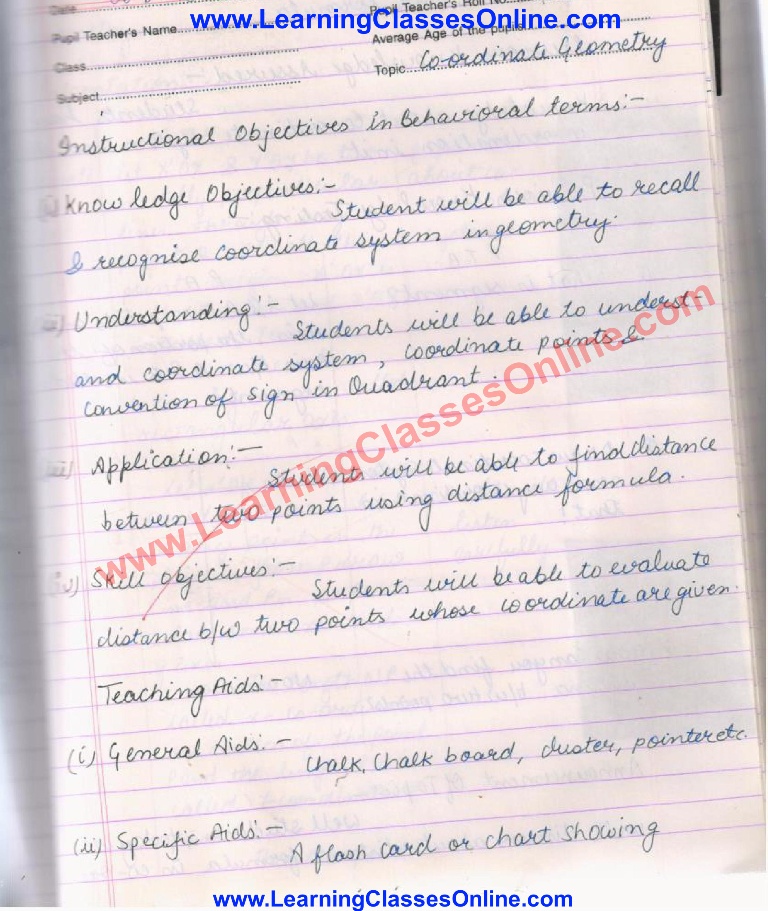 www.LearningClassesOnline.com
Date
Pupil Teacher's Roll No.
Pupil Teacher's Name
Average Age of the pupils
Class
Topic Co-ordinate Geometry
Subject
Instructional Objectives in Behavioral terms:-
i) Know ledge Objectives:- Student will be able to recall
& recognise coordinate system in geometry.
ii) Understanding:- Students will be able to underst-
and coordinate system, coordinate points &
convention of sign in Quadrant.
iii) Application:- Student will be able to find distance
between two points using distance formula.
www.LearningClassesOnline.com
iv) Skill objectives:- Students will be able to evaluate
distance b/w two points whose coordinate are given.
Teaching Aids:-
(i) General Aids:- Chalk, Chalk board, duster, pointer etc.
(ii) Specific Aids:- A flash card or chart showing
www.LearningClassesOnline.com